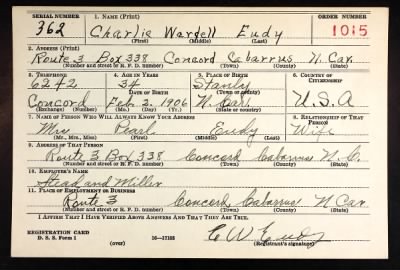 SERIAL NUMBER
1. NAME (Print)
ORDER NUMBER
362
Charlie Wardell Eudy
1015
(First) (Middle) (Last)
2. ADDRESS (Print)
Route 3 Box 338 Concord Cabarrus N. Car.
(Number and street or R. F. D. number) (Town) (County) (State)
3. TELEPHONE
4. AGE IN YEARS
5. PLACE OF BIRTH
6. COUNTRY OF CITIZENSHIP
6242
34
Stanly
DATE OF BIRTH
(Town or county)
Concord
Feb. 2, 1906
N. Car.
U.S.A
(Exchange) (Number)
(Mo.) (Day) (Yr.)
(State or country)
7. NAME OF PERSON WHO WILL ALWAYS KNOW YOUR ADDRESS
8. RELATIONSHIP OF THAT PERSON
Mrs Pearl Eudy
Wife
(Mr., Mrs., Miss) (First) (Middle) (Last)
9. ADDRESS OF THAT PERSON
Route 3 Box 338 Concord Cabarrus N. C.
(Number and street or R. F. D. number) (Town) (County) (State)
10. EMPLOYER'S NAME
Stead and Miller
11. PLACE OF EMPLOYMENT OR BUSINESS
Route 3 Concord Cabarrus N Car.
(Number and street or R. F. D. number) (Town) (County) (State)
I AFFIRM THAT I HAVE VERIFIED ABOVE ANSWERS AND THAT THEY ARE TRUE.
REGISTRATION CARD
D. S. S. Form 1
(over)
16—17105
C W Eudy
(Registrant's signature)